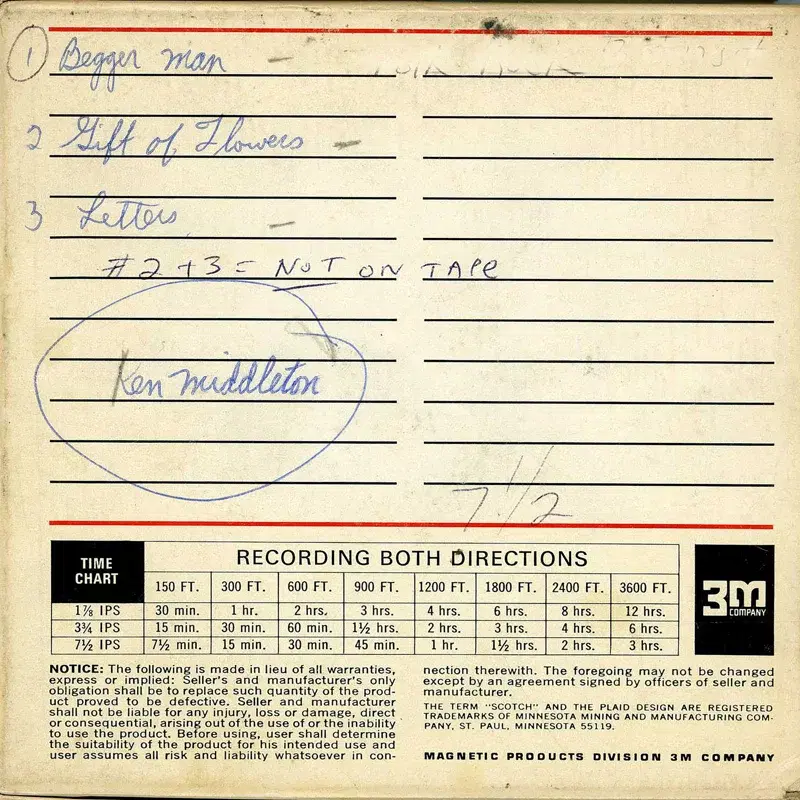 1 Begger man -
2 Gift of Flowers -
3 Letters -
#2+3= NOT ON TAPE
Ken middleton
7 1/2
TIME CHART
RECORDING BOTH DIRECTIONS
150 FT. 300 FT. 600 FT. 900 FT. 1200 FT. 1800 FT. 2400 FT. 3600 FT.
1⅞ IPS 30 min. 1 hr. 2 hrs. 3 hrs. 4 hrs. 6 hrs. 8 hrs. 12 hrs.
3¾ IPS 15 min. 30 min. 60 min. 1½ hrs. 2 hrs. 3 hrs. 4 hrs. 6 hrs.
7½ IPS 7½ min. 15 min. 30 min. 45 min. 1 hr. 1½ hrs. 2 hrs. 3 hrs.
3M COMPANY
NOTICE: The following is made in lieu of all warranties,
express or implied: Seller's and manufacturer's only
obligation shall be to replace such quantity of the prod-
uct proved to be defective. Seller and manufacturer
shall not be liable for any injury, loss or damage, direct
or consequential, arising out of the use of or the inability
to use the product. Before using, user shall determine
the suitability of the product for his intended use and
user assumes all risk and liability whatsoever in con-
nection therewith. The foregoing may not be changed
except by an agreement signed by officers of seller and
manufacturer.
THE TERM "SCOTCH" AND THE PLAID DESIGN ARE REGISTERED
TRADEMARKS OF MINNESOTA MINING AND MANUFACTURING COM-
PANY, ST. PAUL, MINNESOTA 55119.
MAGNETIC PRODUCTS DIVISION 3M COMPANY